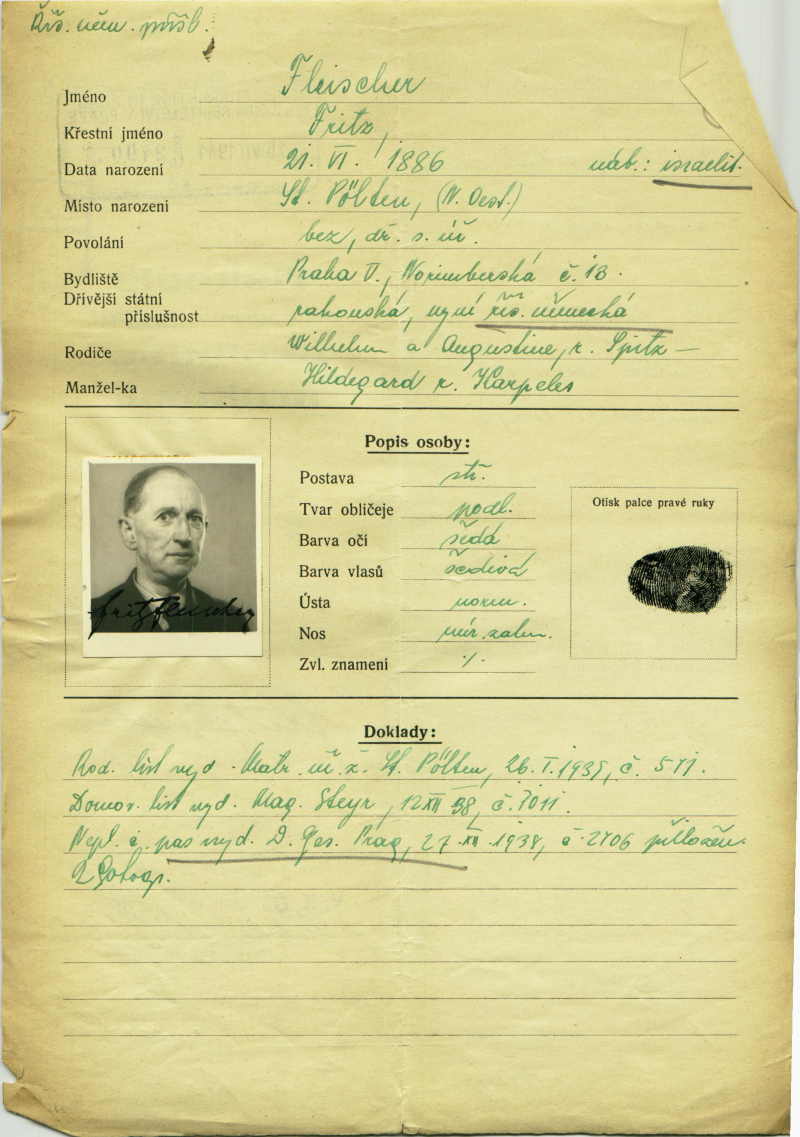 Říš. něm. přísl.
Jméno Fleischer
Křestní jméno Fritz,
Data narození 21. VI. 1886 náb.: israelit.
Místo narození St. Pölten, (N. Oest.)
Povolání bez, dř. s. úř.
Bydliště Praha V., Norimberská č. 13.
Dřívější státní
příslušnost rakouská, nyní říš. německá
Rodiče Wilhelm a Augustine, r. Spitz —
Manžel-ka Hildegard r. Karpeles
Popis osoby:
Postava stř.
Tvar obličeje podl.
Barva očí šedá
Barva vlasů šedivá
Ústa norm.
Nos
Zvl. znamení ·/.
Otisk palce pravé ruky
Fritz Fleischer
Doklady:
Rod. list vyd. Matr. úř. ž. St. Pölten, 26. I. 1939, č.
Domov. list vyd. Mag. Steyr, 12 XII 38, č. 7011.
Nepl. č. pas vyd. D. Ges. Prag, 27. XII. 1938, č. 2706 přiložen.
2 Fotogr.